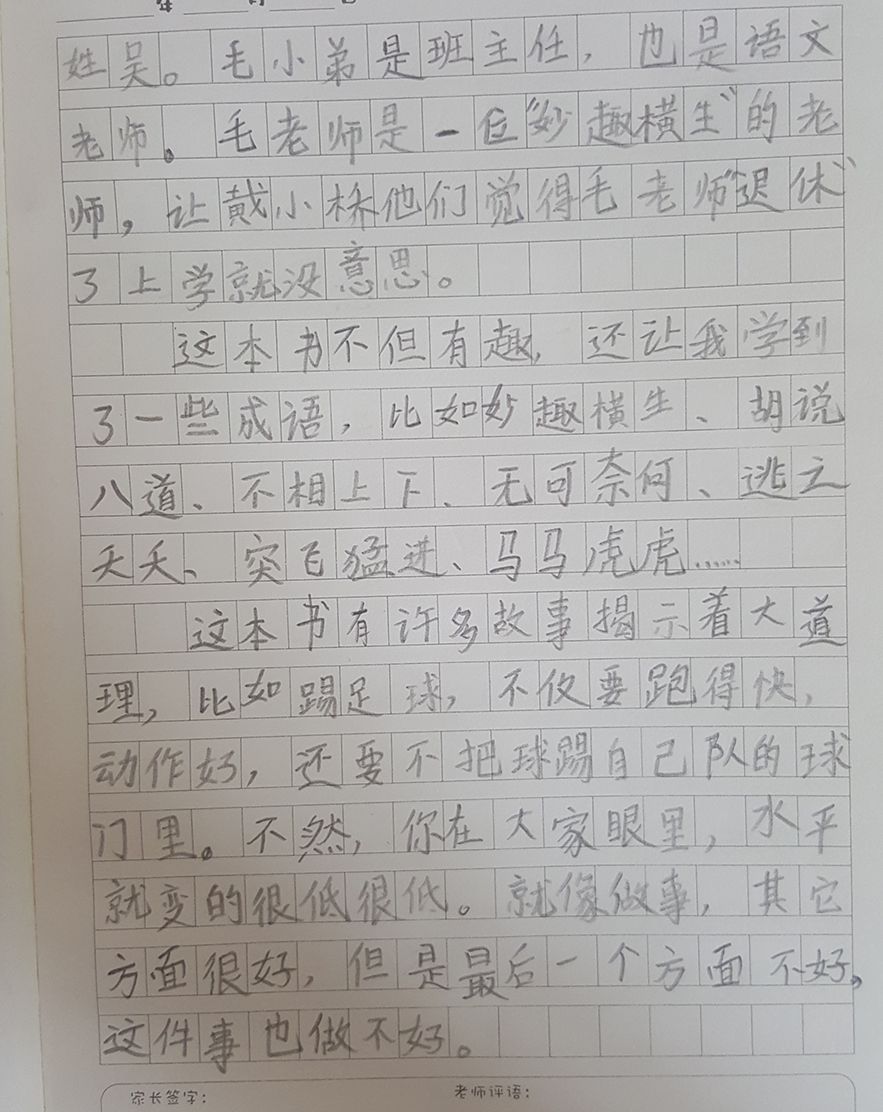 年
姓吴。毛小弟是班主任，也是语文
老师。毛老师是一位“妙趣横生”的老
师，让戴小桥他们觉得毛老师“退休”
了上学就没意思。
这本书不但有趣，还让我学到
了一些成语，比如妙趣横生、胡说
八道、不相上下、无可奈何、逃之
夭夭、突飞猛进、马马虎虎……
这本书有许多故事揭示着大道
理，比如踢足球，不仅要跑得快，
动作好，还要不把球踢自己队的球
门里。不然，你在大家眼里，水平
就变的很低很低。就像做事，其它
方面很好，但是最后一个方面不好，
这件事也做不好。
家长签字： 老师评语：